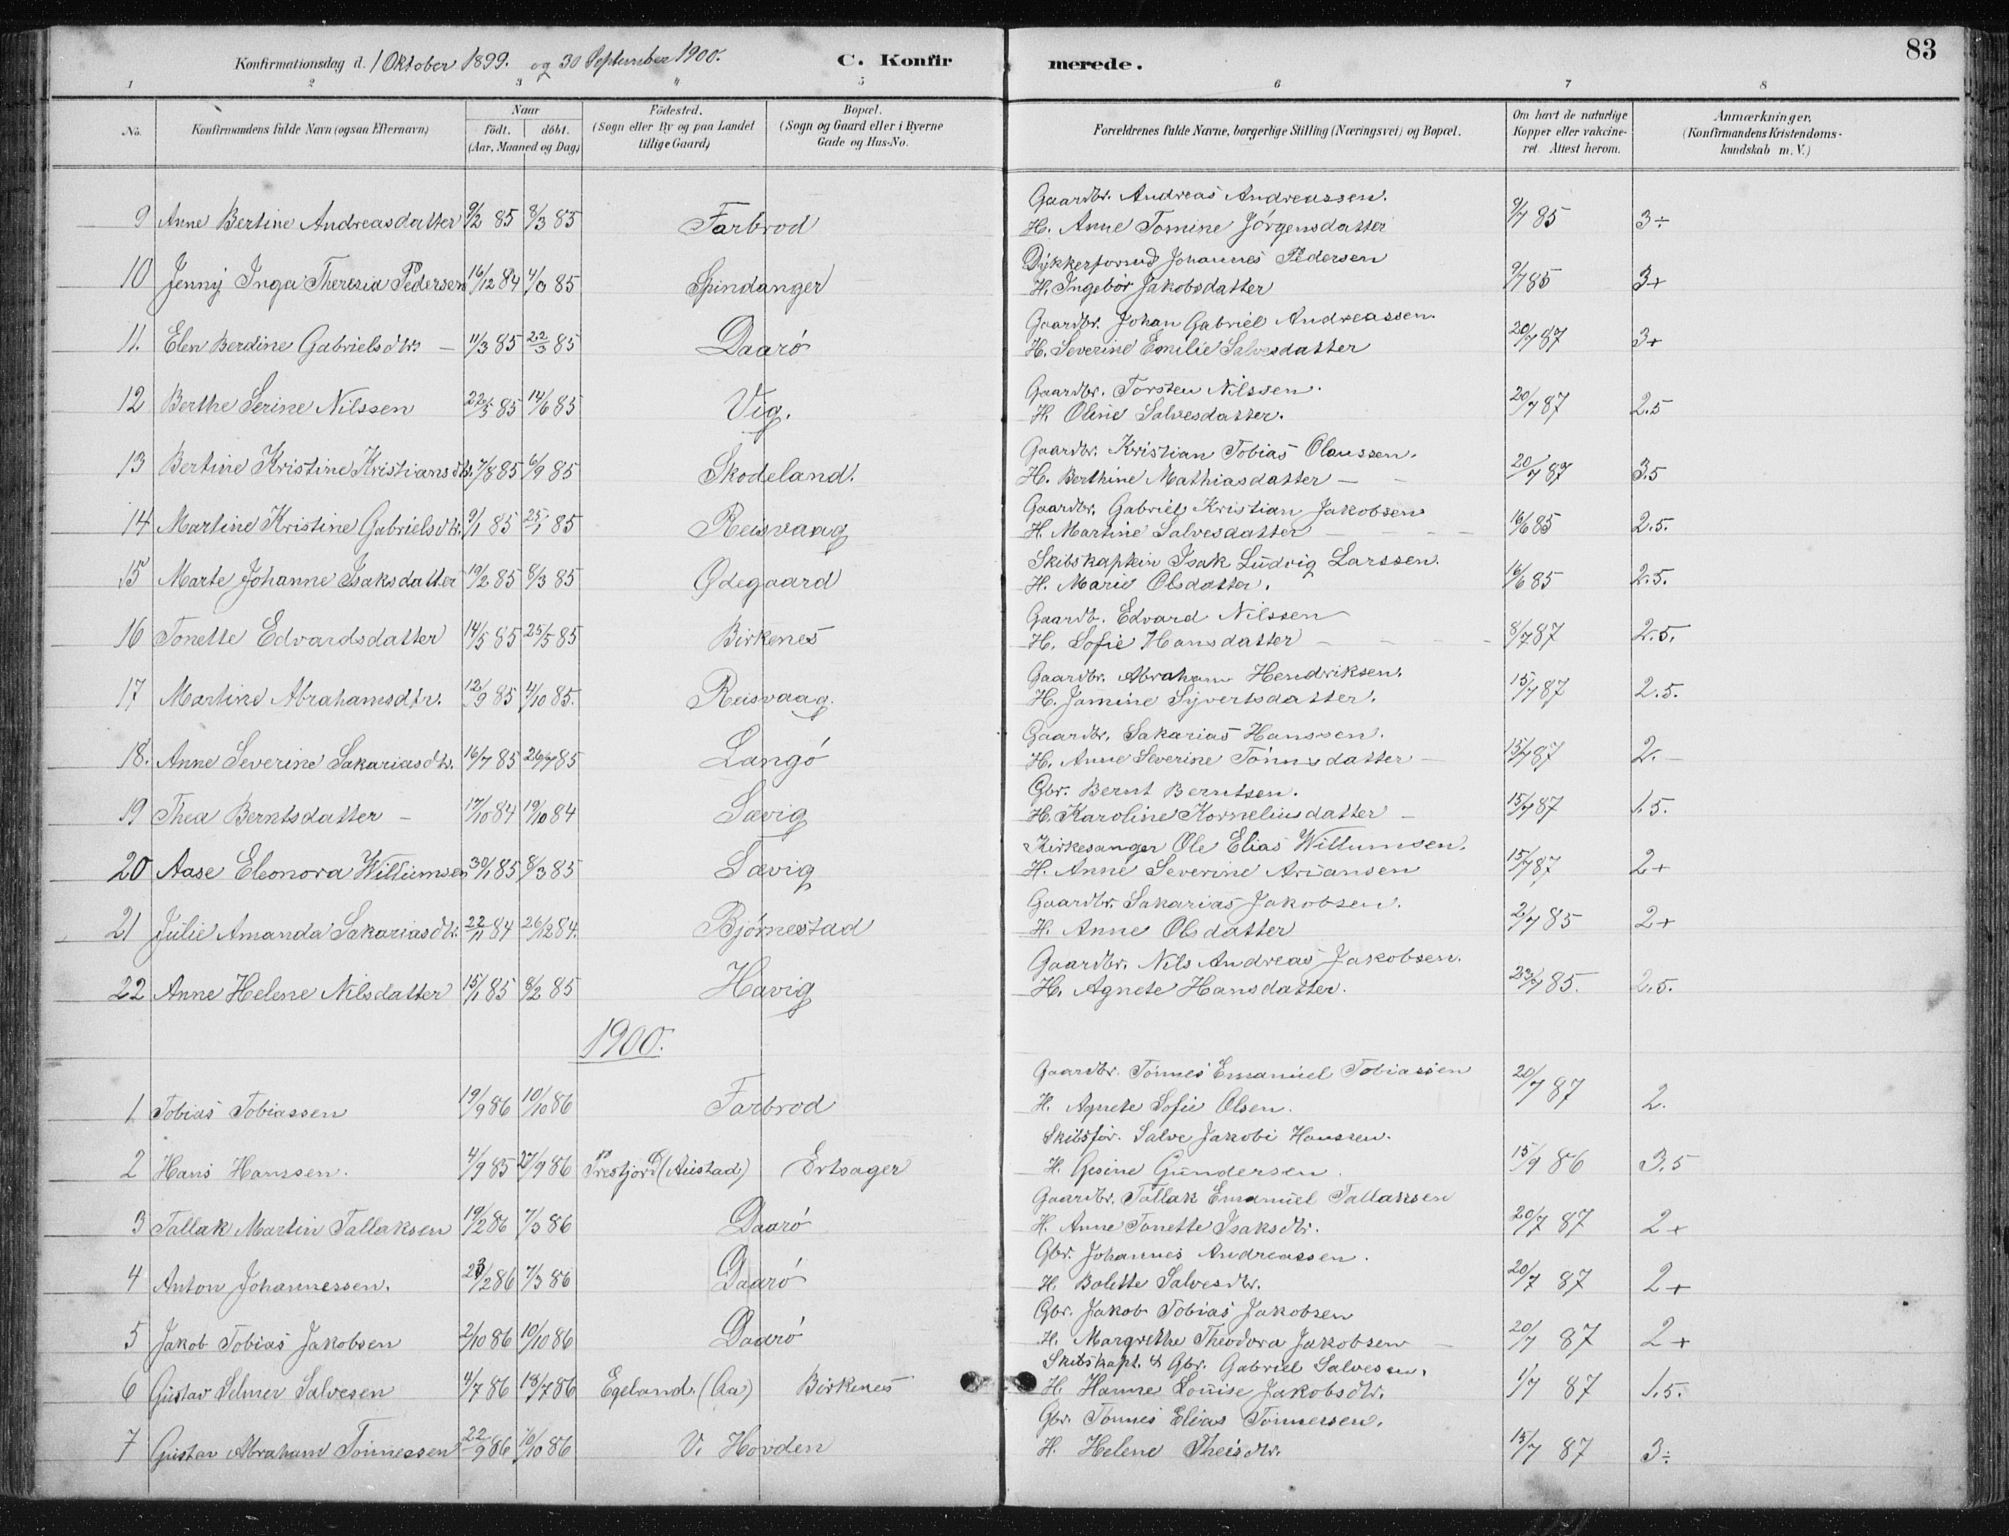 Konfirmationsdag d. 1 Oktober 1899. og 30 September 1900. C. Konfirmerede. 83
1 2 3 4 5 6 7 8
No. Konfirmandens fulde Navn (ogsaa Efternavn) Naar født. døbt. (Aar, Maaned og Dag) Fødested. (Sogn eller By og paa Landet tillige Gaard) Bopæl. (Sogn og Gaard eller i Byerne Gade og Hus-No. Forældrenes fulde Navne, borgerlige Stilling (Næringsvei) og Bopæl. Om havt de naturlige Kopper eller vakcineret. Attest herom. Anmærkninger. (Konfirmandens Kristendomskundskab m. V.)
Gaardbr. Andreas Andreassen.
9 Anne Bertine Andreasdatter 9/2 85 8/3 85 Farbrod H. Anne Tomine Jörgensdatter 9/7 85 3÷
Dykkerformd Johannes Pedersen
10 Jenny Inga Theresia Pedersen 16/12 84 4/3 85 Spindanger H. Ingebor Jakobsdatter 9/7 85 3+
Gaardbr. Johan Gabriel Andreassen.
11. Elen Berdine Gabrielsdtr. 11/3 85 22/3 85 Daarö H. Severine Emilie Salvesdatter 20/7 87 3+
Gaardbr. Torsten Nilssen.
12 Berthe Serine Nilssen 22/5 85 14/6 85 Vig. H. Oline Salvesdatter. 20/7 87 2.5
Gaardbr. Kristian Tobias Olaussen.
13 Bertine Kristine Kristiansdtr. 7/8 85 6/9 85 Skodeland. H. Berthine Mathiasdatter 20/7 87 3.5
Gaardbr. Gabriel Kristian Jakobsen
14 Martine Kristine Gabrielsdtr. 9/1 85 25/1 85 Reisvaag H. Martine Salvesdatter 16/6 85 2.5.
Skibskaptein Isak Ludvig Larssen.
15 Marte Johanne Isaksdatter 19/2 85 8/3 85 Ødegaard H. Marie Olsdatter. 16/6 85 2.5.
Gaardb. Edvard Nilssen
16 Tonette Edvardsdatter 14/5 85 25/5 85 Birkenes H. Sofie Hansdatter 8/7 87 2.5.
Gaardbr. Abraham Hendriksen.
17 Martine Abrahamsdtr. 12/9 85 4/10 85. Reisvaag. H. Jomine Syvertsdatter. 15/7 87 2.5.
Gaardbr. Sakarias Hanssen.
18. Anne Severine Sakariasdtr. 16/7 85 26/7 85 Langö H. Anne Severine Tönnsdatter 15/7 87 2.
Gbr. Bernt Berntsen.
19 Thea Berntsdatter 17/10 84 19/10 84 Sævig H. Karoline Korneliusdatter 15/7 87 1.5.
Kirkesanger Ole Elias Willumsen.
20 Aase Eleonora Willumsen 30/1 85 8/3 85 Sævig H. Anne Severine Ariansen 15/7 87 2+
Gaardbr. Sakarias Jakobsen.
21 Julie Amanda Sakariasdtr. 22/11 84 26/12 84. Bjørnestad H. Anne Olsdatter 2/7 85 2+
Gaardbr. Nils Andreas Jakobsen.
22 Anne Helene Nilsdatter 15/1 85 8/2 85 Havig H. Agnete Hansdatter. 23/7 85. 2.5.
1900.
Gaardbr. Tönnes Emanuel Tobiassen
1 Tobias Tobiassen 19/9 86 10/10 86 Farbrod H. Agnete Sofie Olsen. 20/7 87 2.
Skibsför. Salve Jakobi Hanssen.
2 Hans Hanssen. 4/9 85 27/9 86 Presfjord (Austad) Ertsager H. Gesine Gundersen. 15/9 86 3.5
Gaardbr. Tallak Emanuel Tallaksen
3 Tallak Martin Tallaksen 19/2 86 7/3 86 Daarö H. Anne Tonette Isaksdtr. 20/7 87 2+
Gbr. Johannes Andreassen.
4 Anton Johannessen. 23/2 86 7/3 86 Daarö H. Bolette Salvesdtr. 20/7 87 2+
Gbr. Jakob Tobias Jakobsen
5 Jakob Tobias Jakobsen 2/10 86 10/10 86 Daarö H. Margrethe Theodora Jakobsen 20/7 87 2+
Skibskapt. & Gbr. Gabriel Salvesen.
6 Gustav Selmer Salvesen 4/7 86 18/7 86 Egeland. (Aa) Birkenes H. Hanne Louise Jakobsdtr. 1/7 87 1.5.
Gbr. Tönnes Elias Tönnessen.
7 Gustav Abraham Tönnessen 22/9 86 10/10 86 V. Hovden H. Helene Theisdtr. 15/7 87 3÷